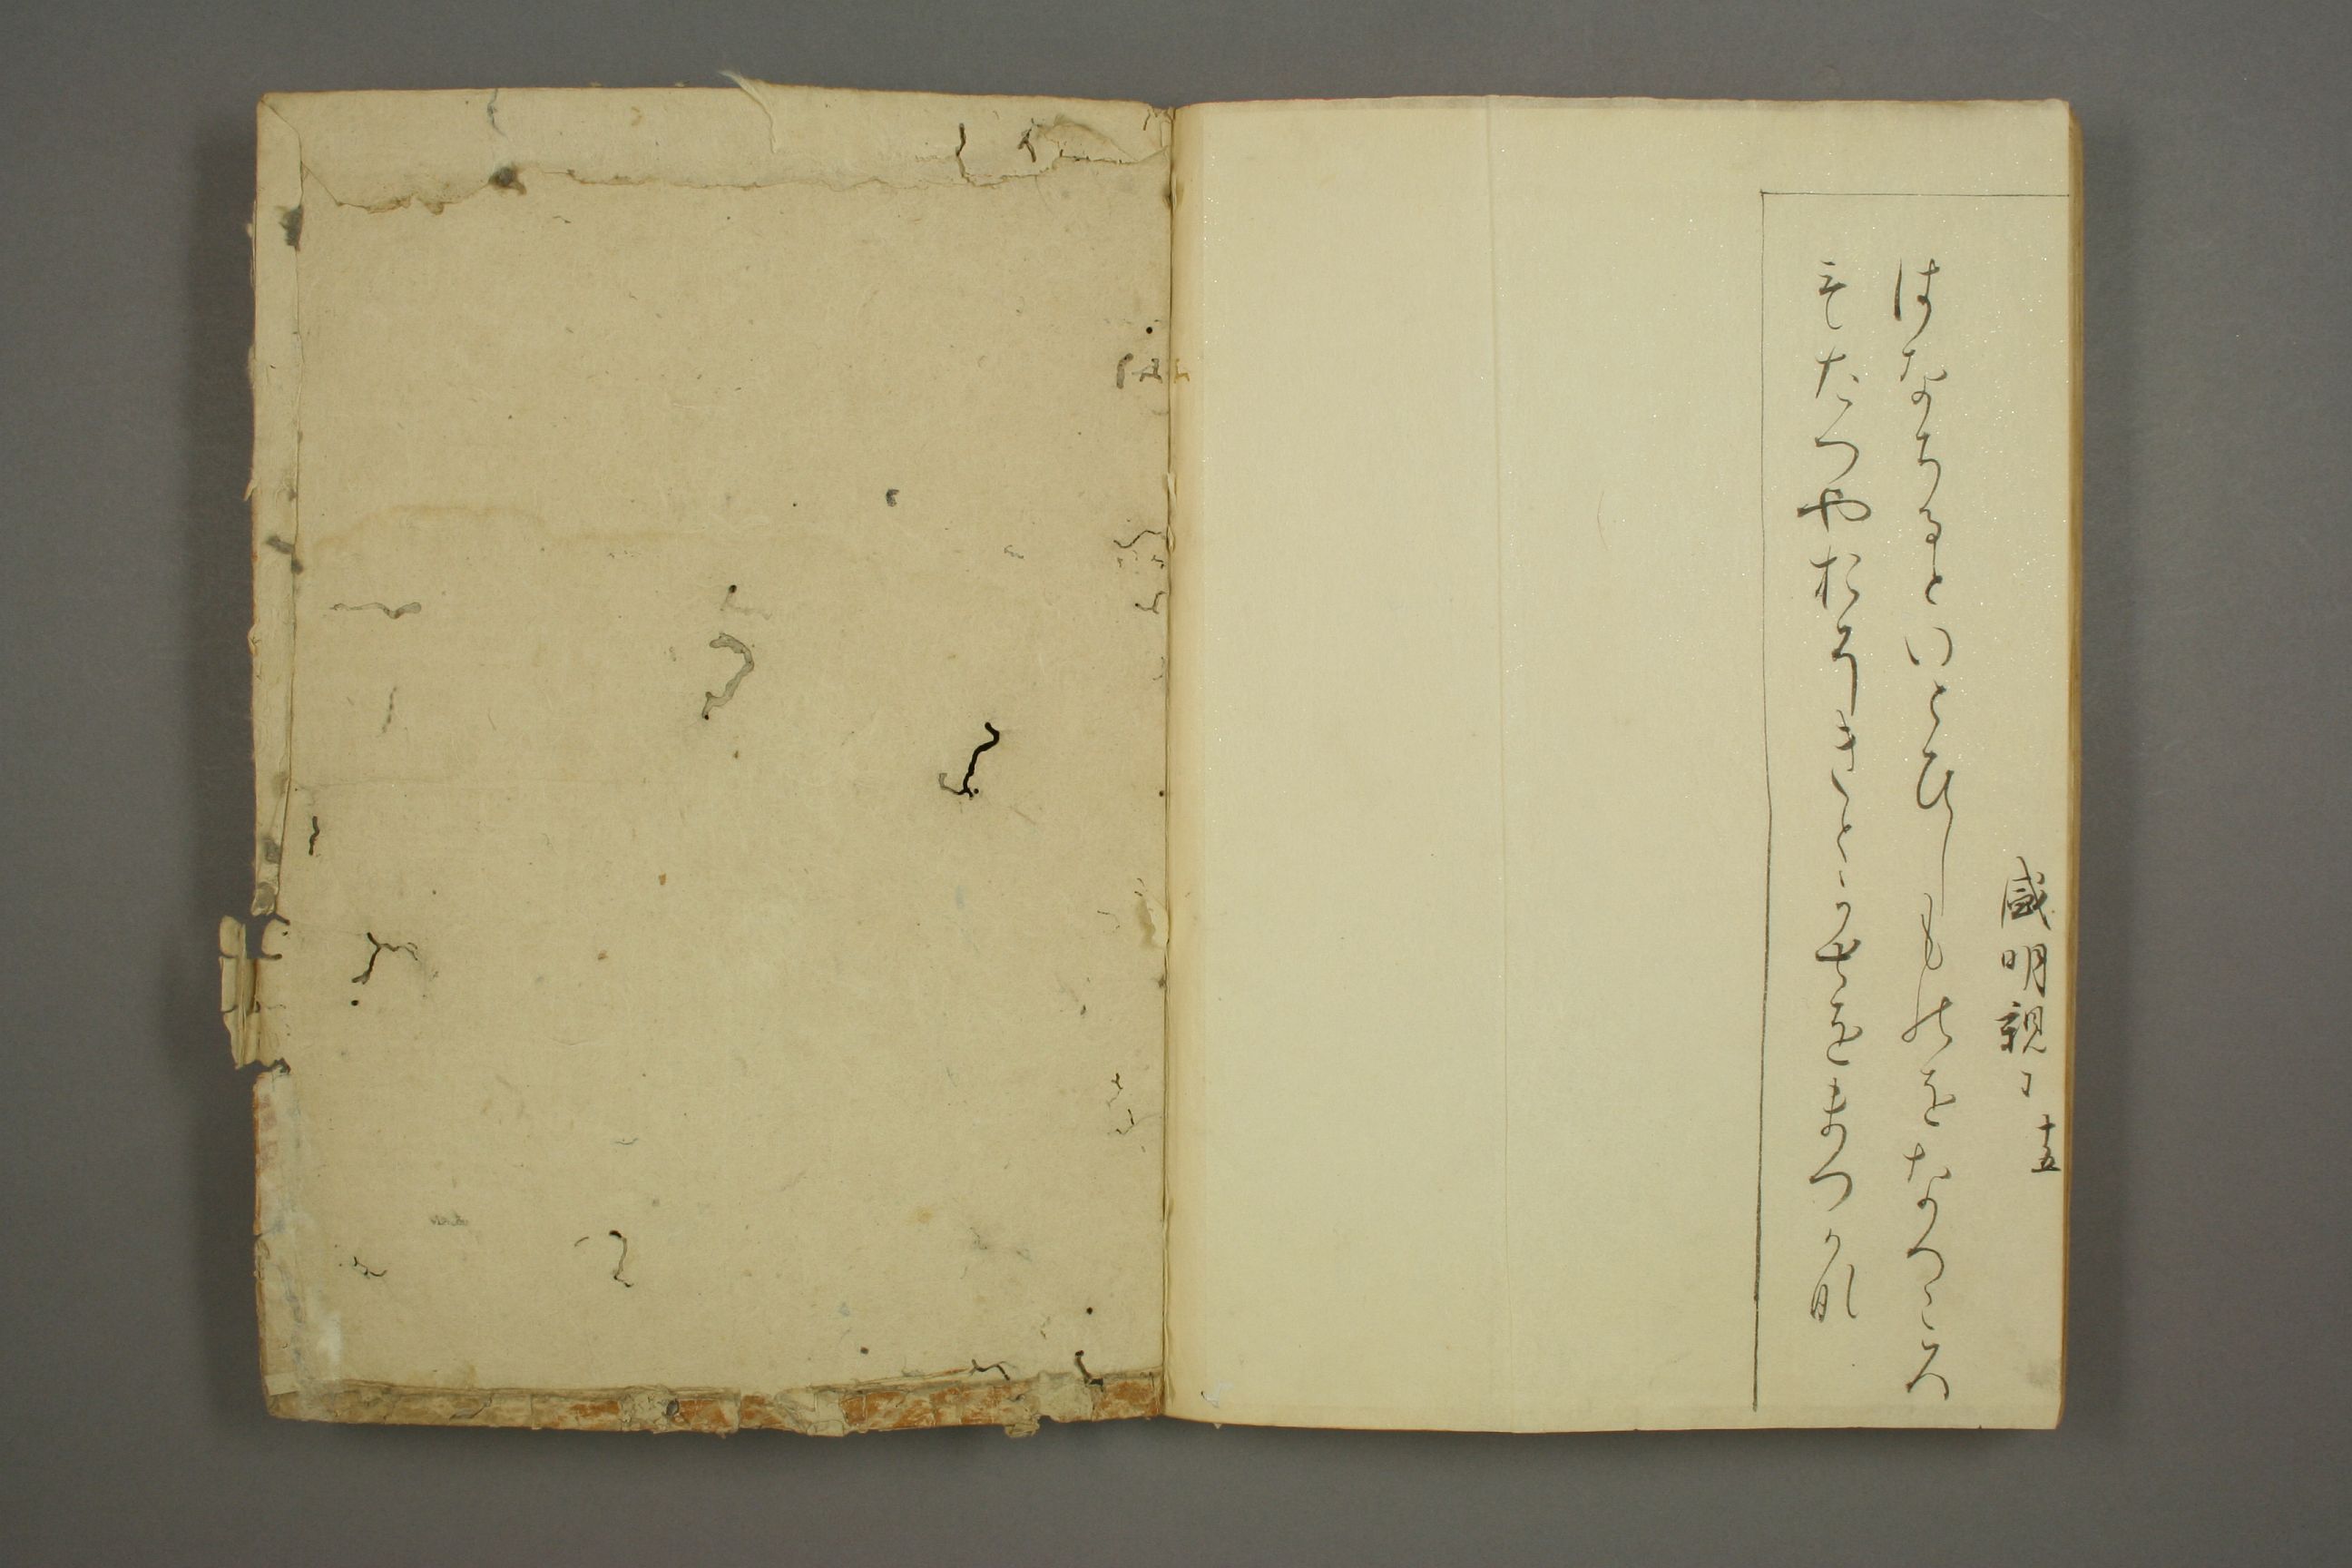 盛明親王 十五
はなちるといとひしものをなつころ
もたつやおそきとかせをまつかな